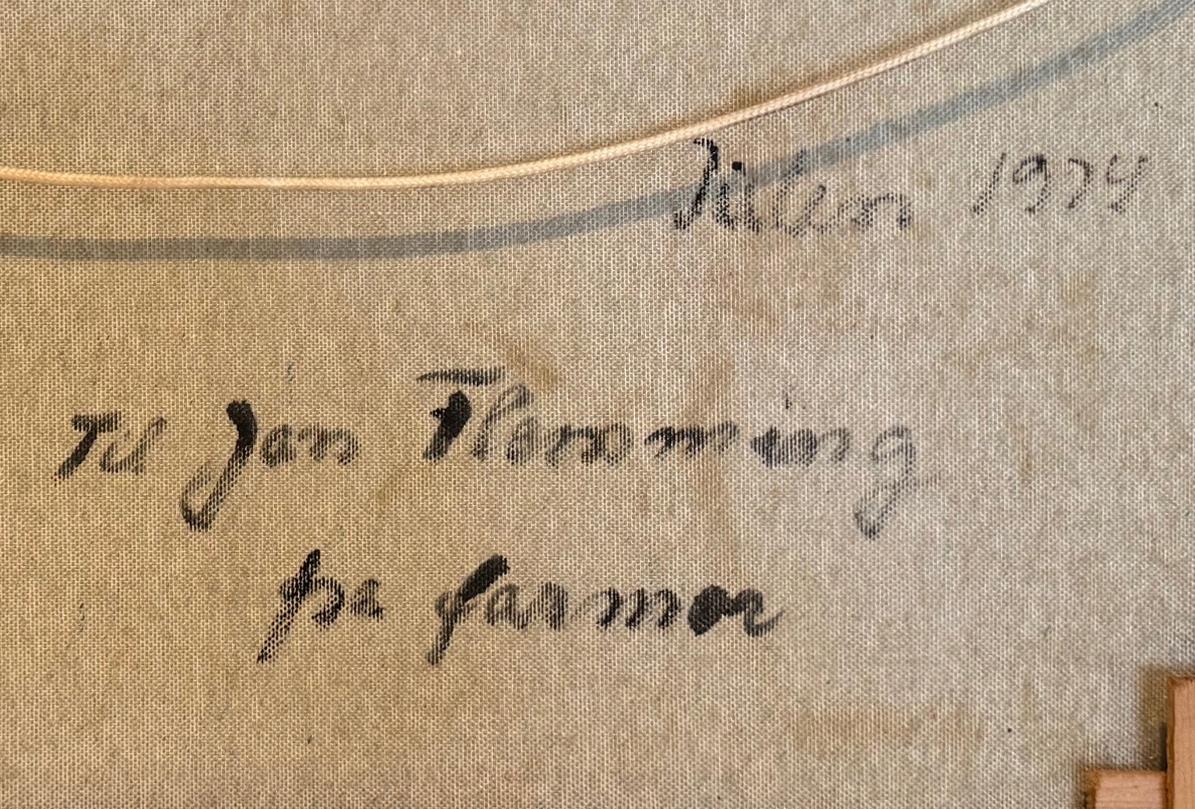 Julen 1974
Til Jan Flemming
fra farmor